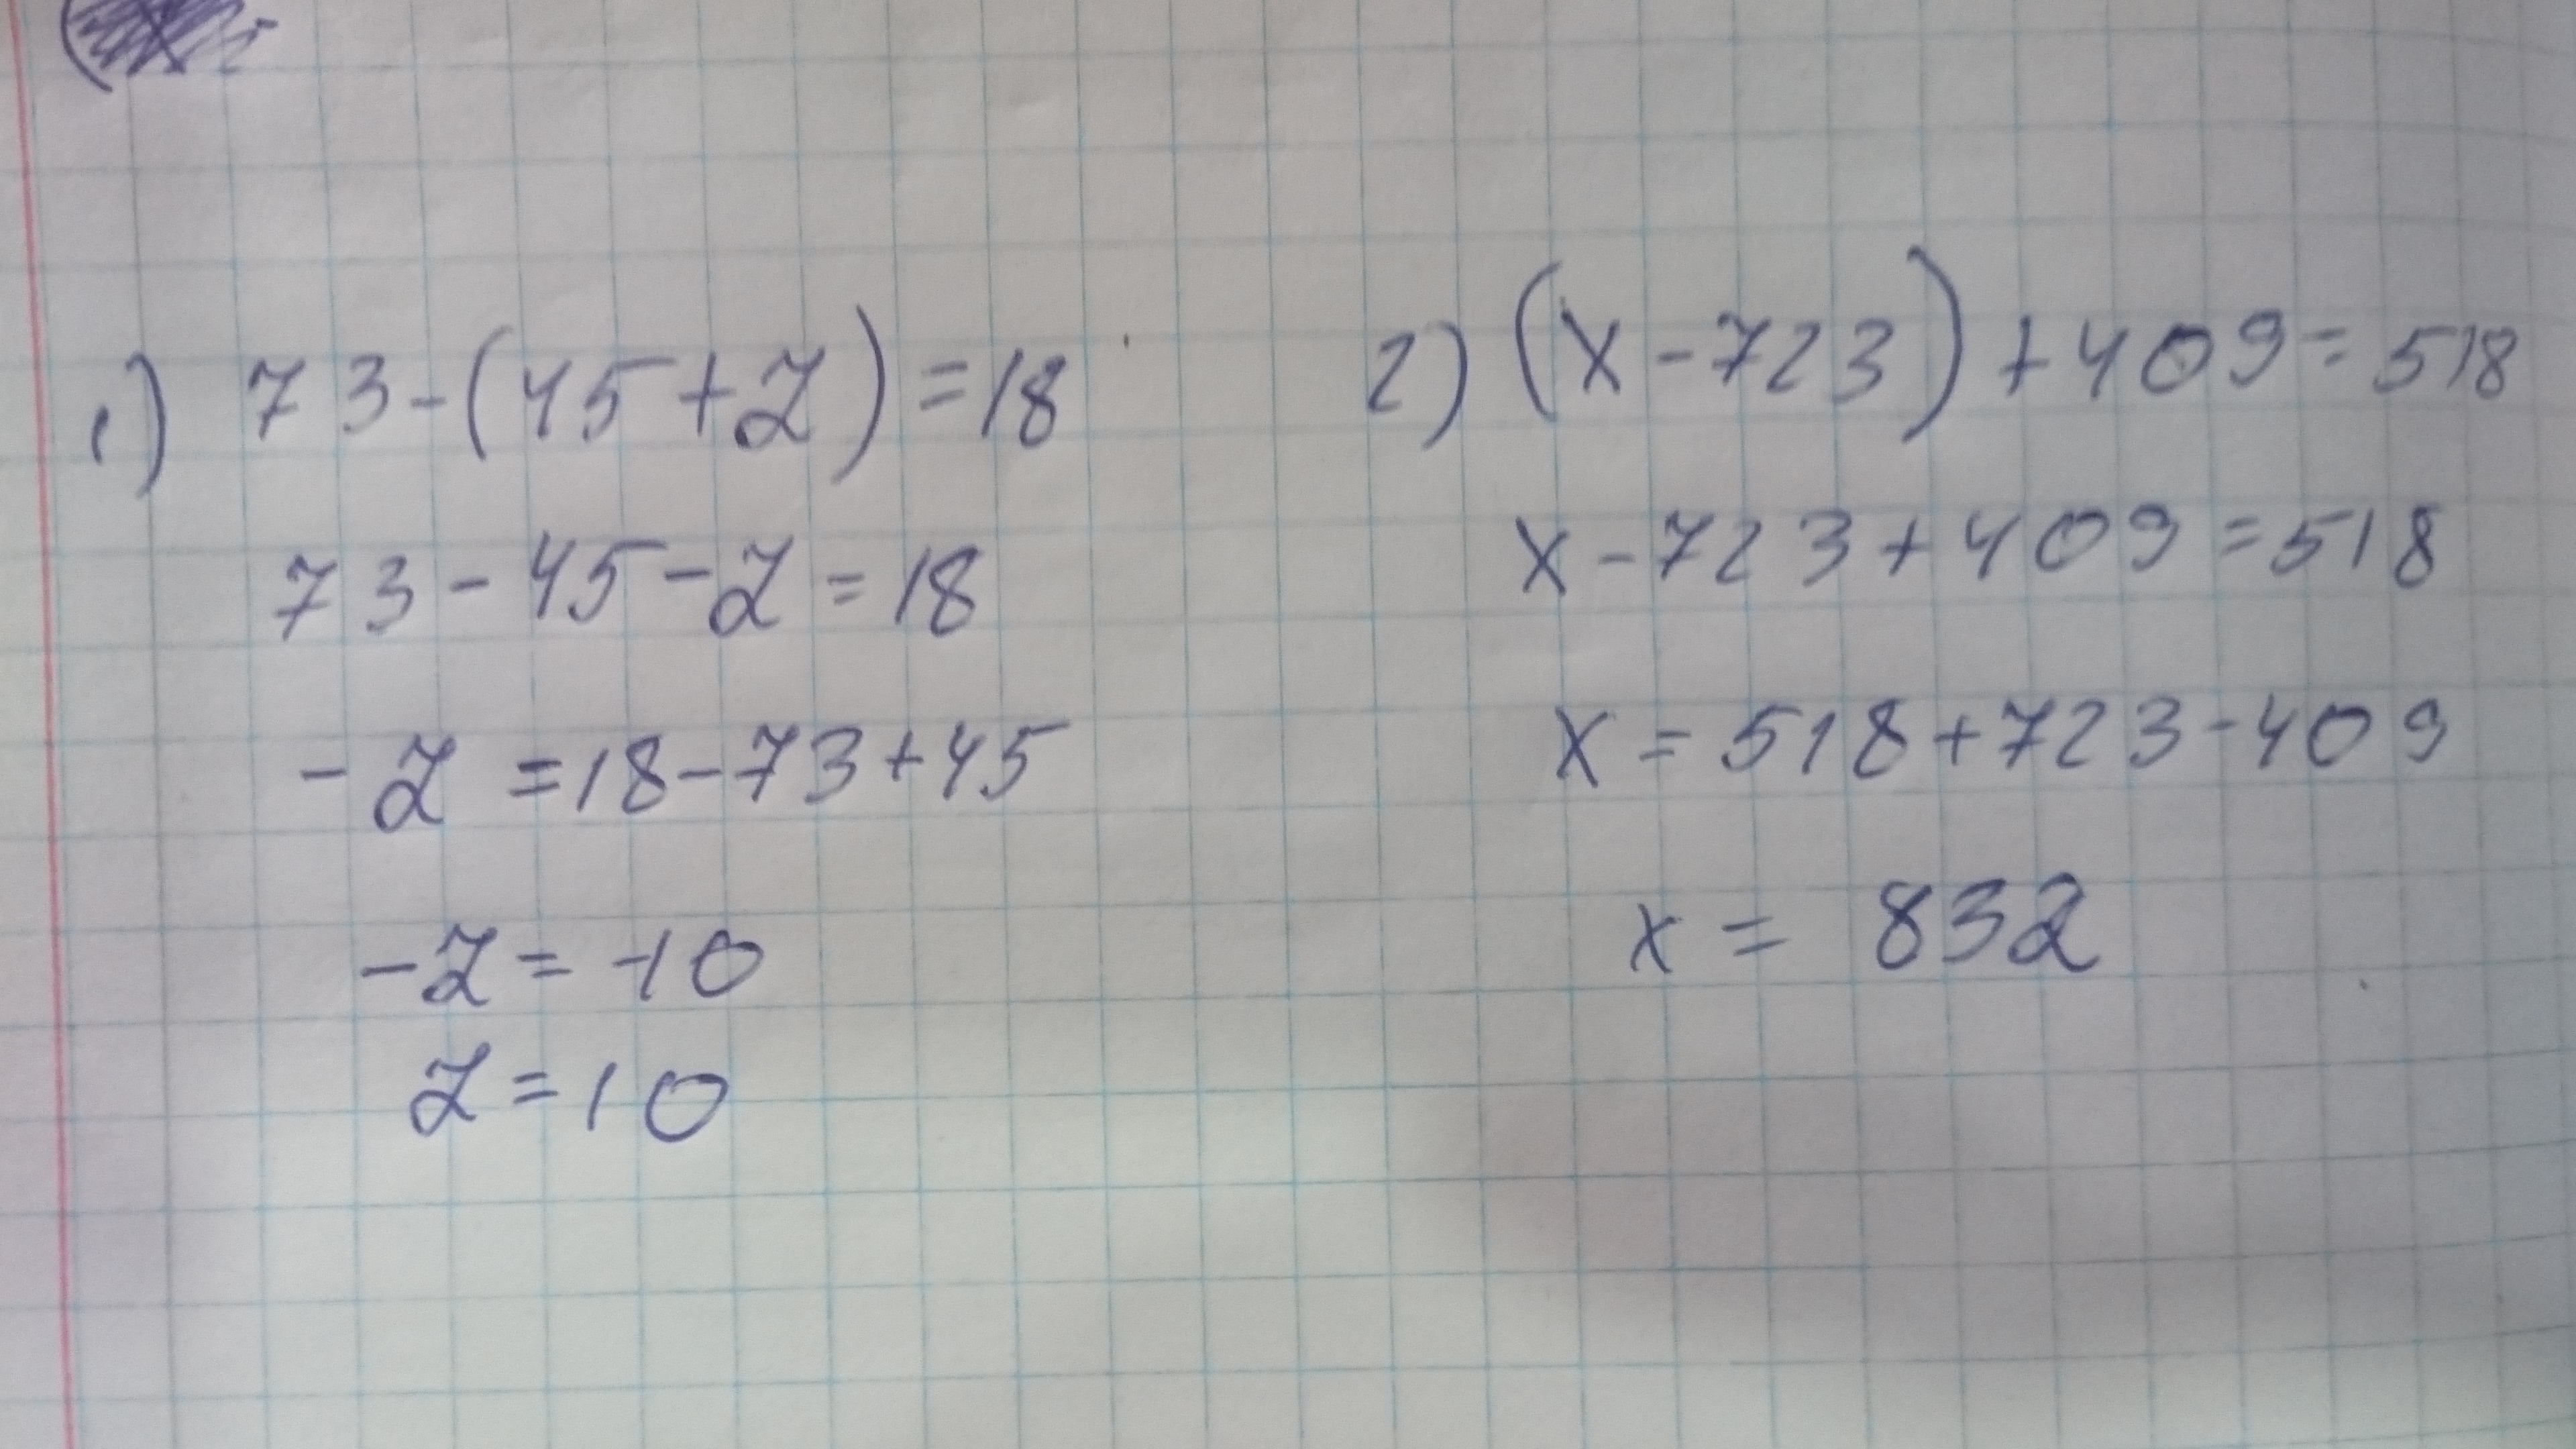 1) 73-(45+Z)=18
73-45-Z=18
-Z=18-73+45
-Z=-10
Z=10
2) (x-723)+409=518
x-723+409=518
x=518+723-409
x=832